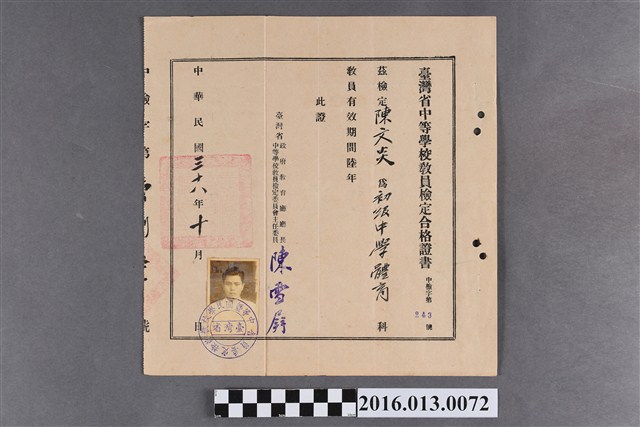 臺灣省中等學校教員檢定合格證書
中檢字第
249號
茲檢定陳文炎為初級中學體育科
教員有效期間陸年
此證
臺灣省
政府教育廳廳長
中等學校教員檢定委員會主任委員
陳雪屏
中華民國三十八年十月
日
中檢字第
號
臺灣省
2016.013.0072